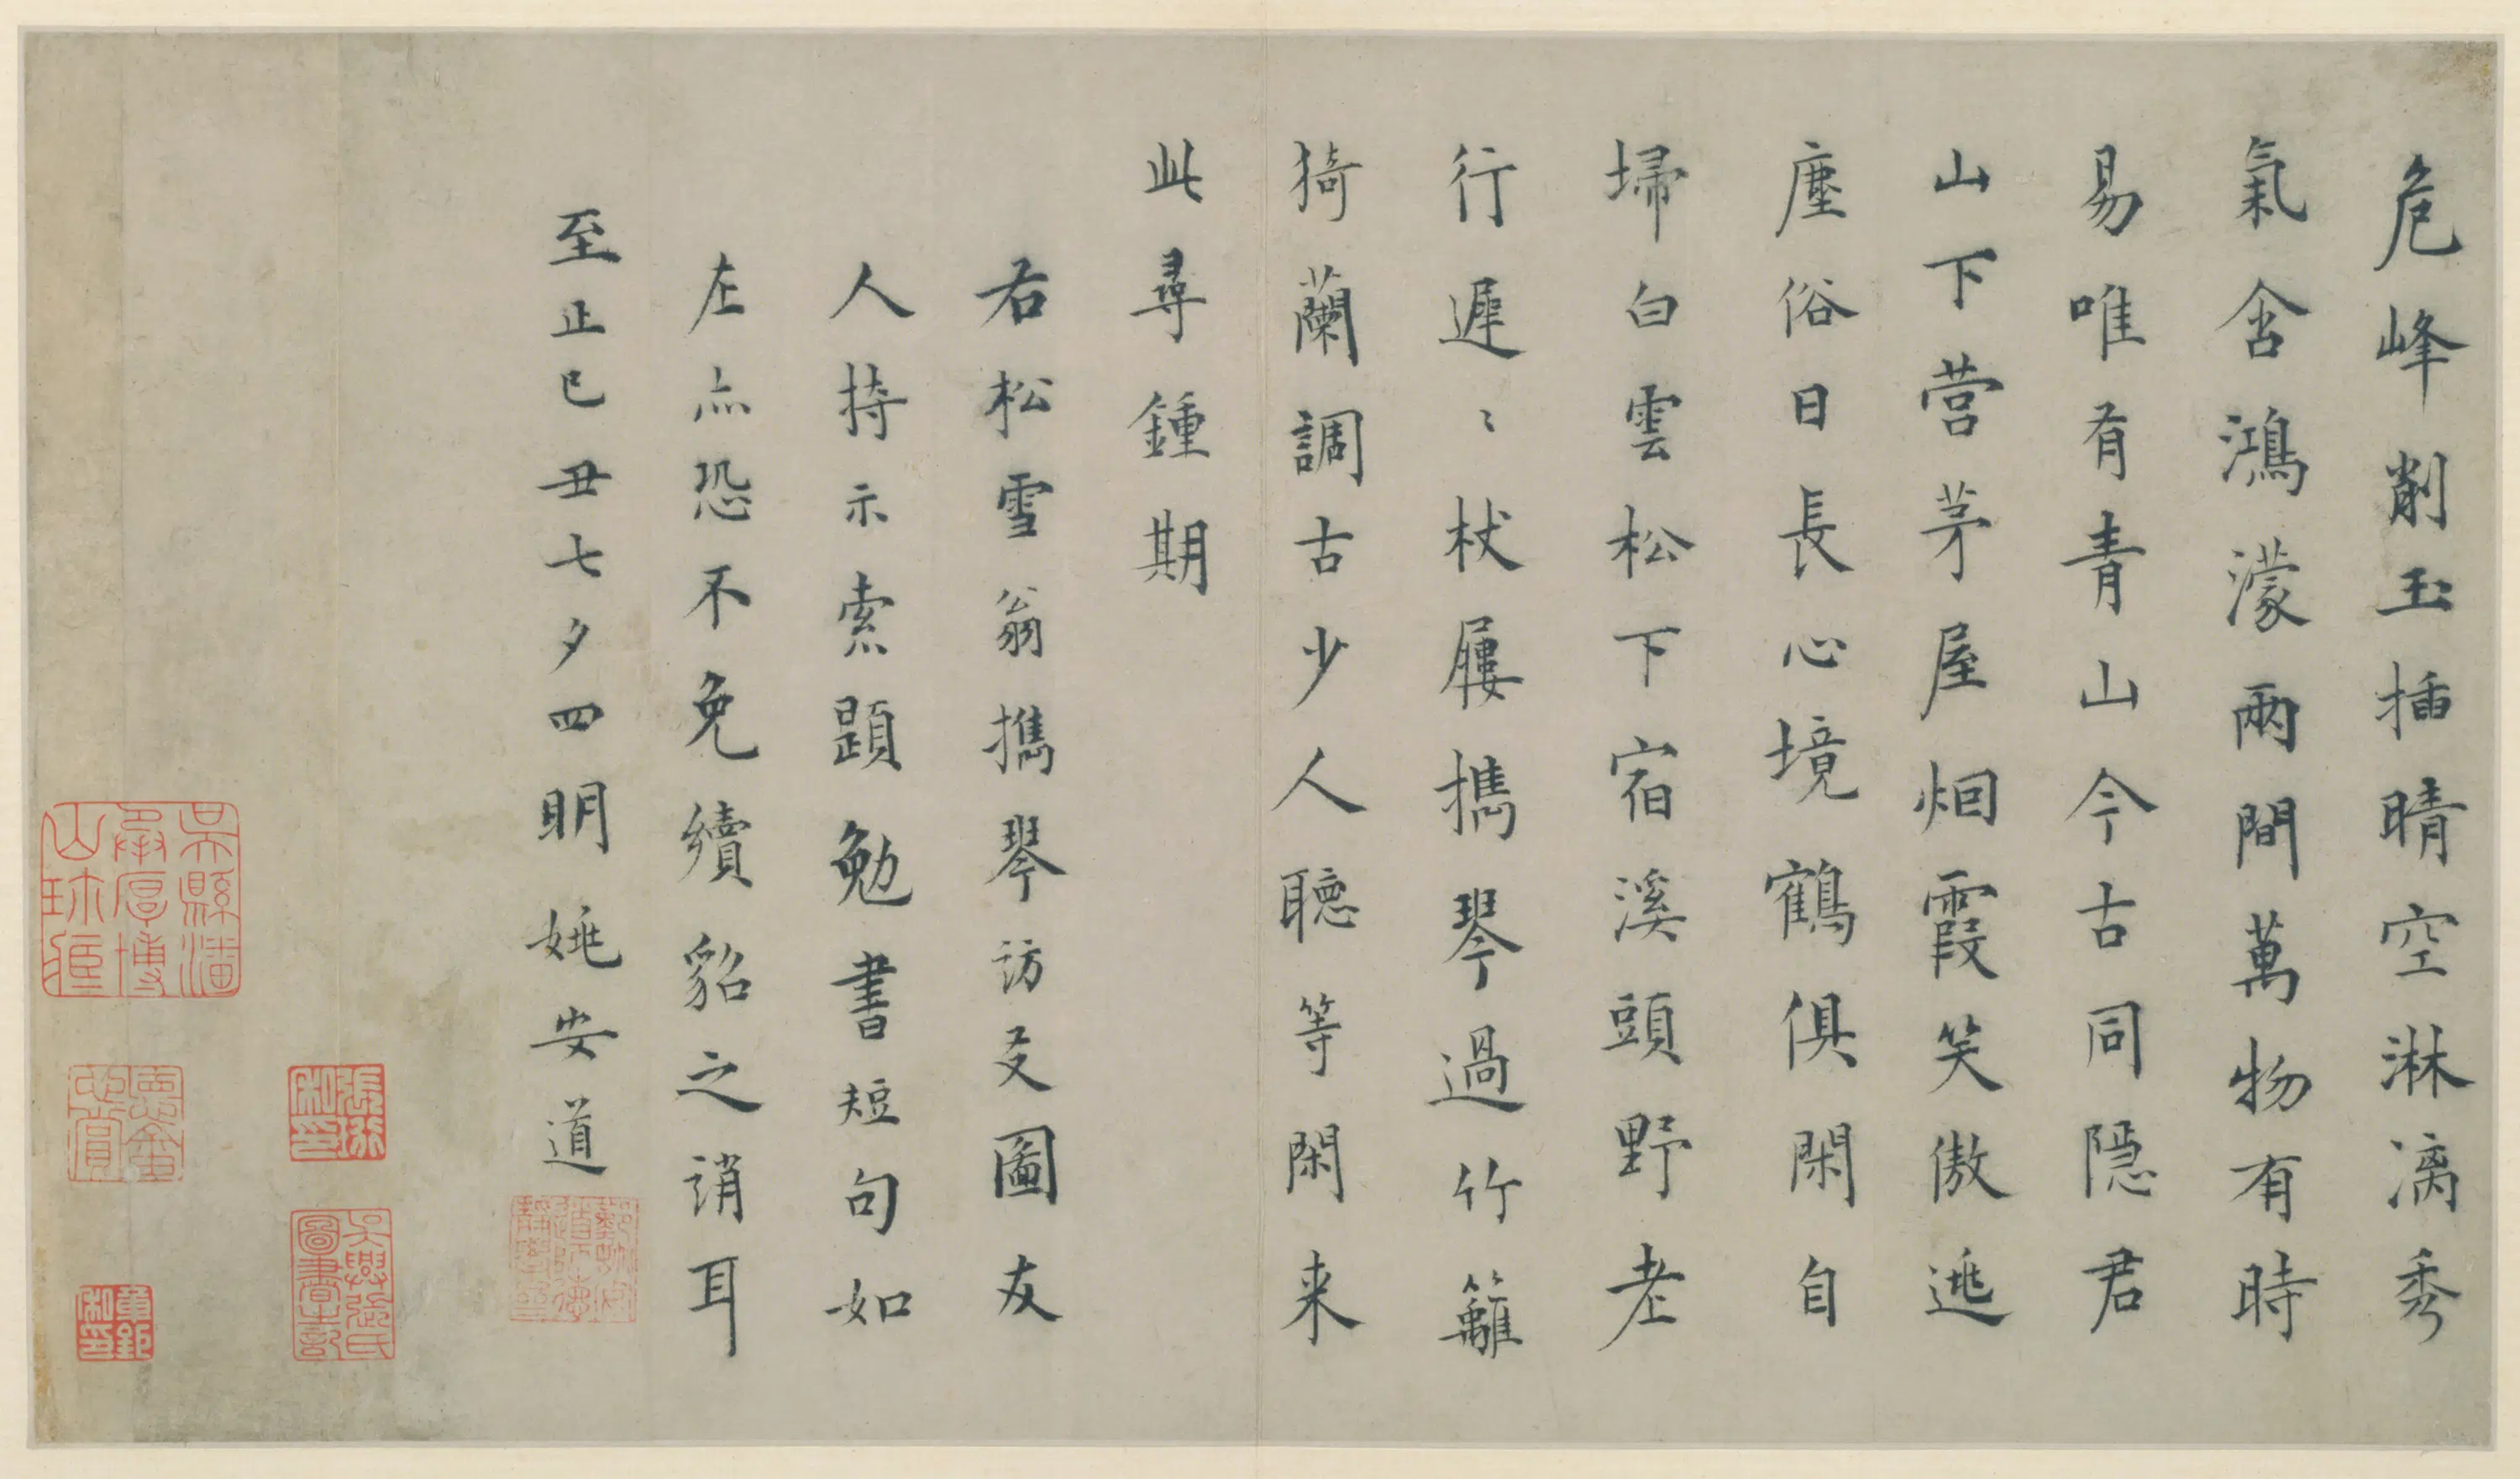 危峰削玉插晴空淋漓秀
氣含鴻濛兩間萬物有時
易唯有青山今古同隱君
山下營茅屋烟霞笑傲逃
塵俗日長心境鶴俱閑自
埽白雲松下宿溪頭野老
行遲〻杖屨攜琴過竹籬
猗蘭調古少人聽等閑来
此尋鍾期
右松雪翁攜琴訪友圖友
人持示索題勉書短句如
左亦恐不免續貂之誚耳
至正己丑七夕四明姚安道
吳興張氏圖書之記